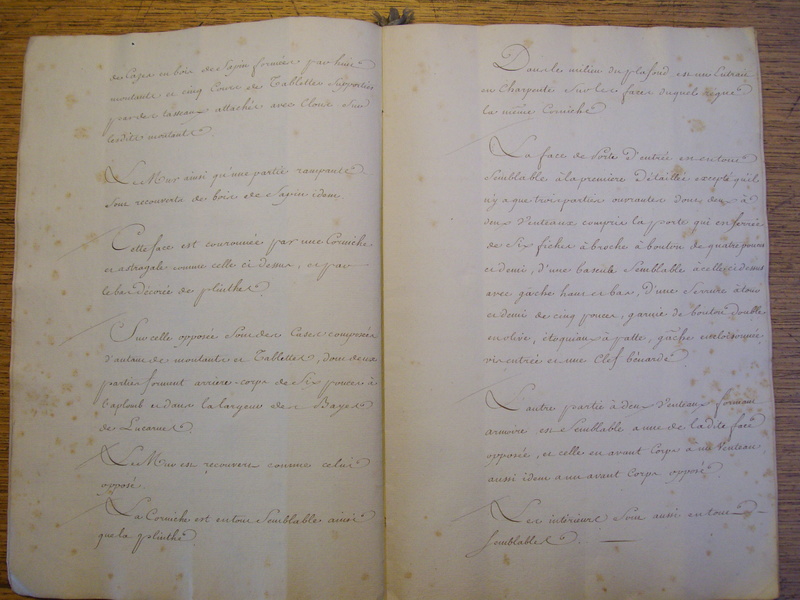 de Cases en bois de Sapin formées par huit
montants et cinq Cours de Tablettes Supportées
par des tasseaux attachés avec Clous sur
lesdits montants.
Le Mur ainsi qu'une partie rampante
Sont recouverts de bois de Sapin idem.
Cette face est couronnée par une Corniche
et astragale comme celle ci dessus, et par
le bas décorée de plinthes.
Sur celle opposée Sont des Cases composées
d'autant de montants et Tablettes, dont deux
parties forment arriere-corps de Six pouces à
l'aplomb et dans la largeur des Bayes
de Lucarnes.
Le Mur est recouvert comme celui
opposé.
La Corniche est en tout Semblables ainsi
que la plinthe
Dans le milieu du plafond est un Entrait
en Charpente Sur les faces duquel règne
la même Corniche
La face de Porte d'entrée en en tout
Semblable à la premiere Détaillée excepté qu'il
n'y a que trois parties ouvrantes dont deux à
deux Venteaux compris la porte qui en ferrée
de Six fiches à broche à bouton de quatre pouces
et demi, d'une bascule Semblable à celle ci dessus
avec gâche haut et bas, d'une Serrure à tour
et demi de cinq pouces, garnie de bouton double
en olive, étoquiaux à patte, gâche encloisonnée
vis entrée et une Clef bénarde
L'autre partie à deux Venteaux formant
armoire est Semblable a une de la dite face
opposée, et celle en avant Corps à un Venteau
aussi idem a un avant Corps opposé.
Les intérieurs Sont aussi en tout
Semblables.